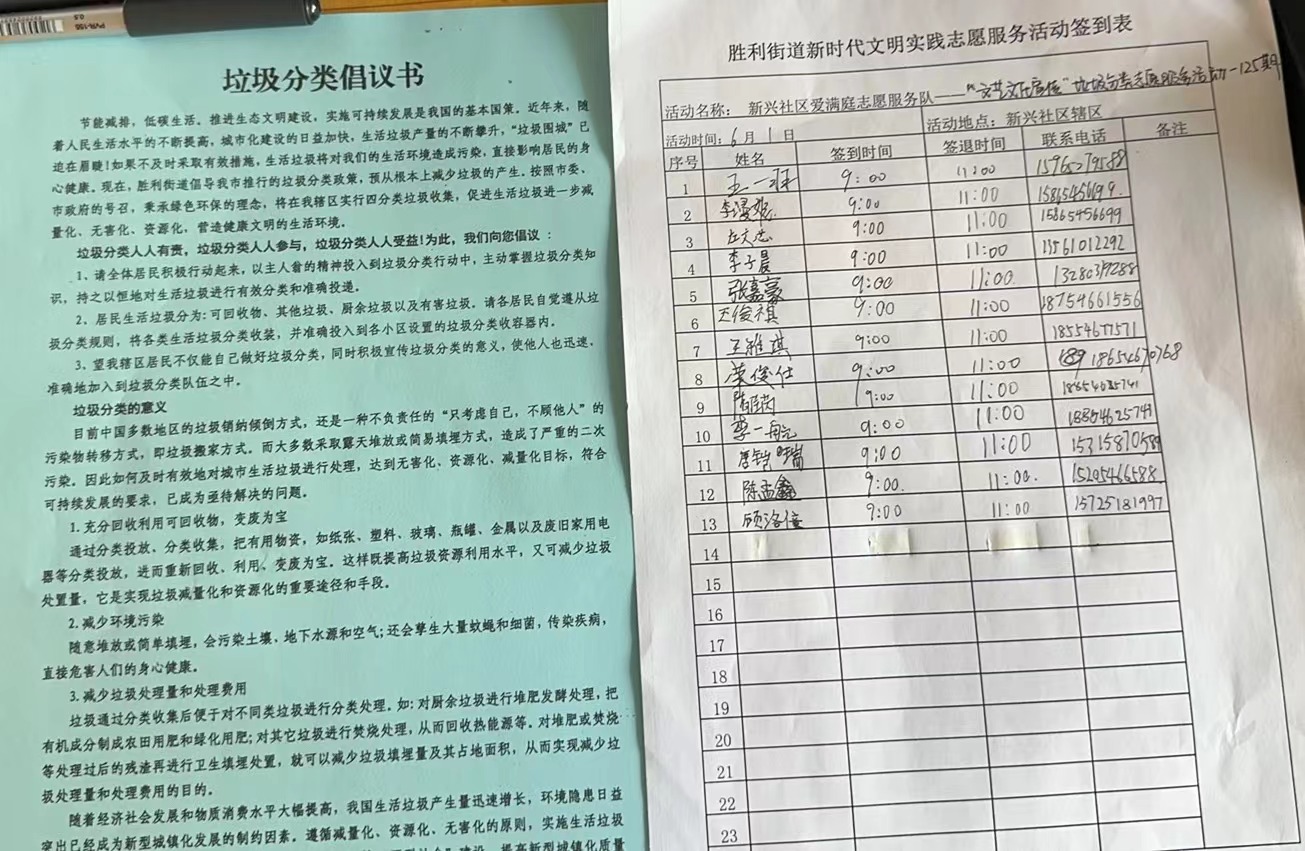 PVR-155
0.5
垃圾分类倡议书
节能减排，低碳生活。推进生态文明建设，实施可持续发展是我国的基本国策。近年来，随
着人民生活水平的不断提高，城市化建设的日益加快，生活垃圾产量的不断攀升，“垃圾围城”已
迫在眉睫！如果不及时采取有效措施，生活垃圾将对我们的生活环境造成污染，直接影响居民的身
心健康。现在，胜利街道倡导我市推行的垃圾分类政策，预从根本上减少垃圾的产生。按照市委、
市政府的号召，秉承绿色环保的理念，将在我辖区实行四分类垃圾收集，促进生活垃圾进一步减
量化、无害化、资源化，营造健康文明的生活环境。
垃圾分类人人有责，垃圾分类人人参与，垃圾分类人人受益！为此，我们向您倡议：
1、请全体居民积极行动起来，以主人翁的精神投入到垃圾分类行动中，主动掌握垃圾分类知
识，持之以恒地对生活垃圾进行有效分类和准确投递。
2、居民生活垃圾分为：可回收物、其他垃圾、厨余垃圾以及有害垃圾。请各居民自觉遵从垃
圾分类规则，将各类生活垃圾分类收装，并准确投入到各小区设置的垃圾分类收容器内。
3、望我辖区居民不仅能自己做好垃圾分类，同时积极宣传垃圾分类的意义，使他人也迅速、
准确地加入到垃圾分类队伍之中。
垃圾分类的意义
目前中国多数地区的垃圾销纳倾倒方式，还是一种不负责任的“只考虑自己，不顾他人”的
污染物转移方式，即垃圾搬家方式。而大多数采取露天堆放或简易填埋方式，造成了严重的二次
污染。因此如何及时有效地对城市生活垃圾进行处理，达到无害化、资源化、减量化目标，符合
可持续发展的要求，已成为亟待解决的问题。
1.充分回收利用可回收物，变废为宝
通过分类投放、分类收集，把有用物资，如纸张、塑料、玻璃、瓶罐、金属以及废旧家用电
器等分类投放，进而重新回收、利用、变废为宝。这样既提高垃圾资源利用水平，又可减少垃圾
处置量，它是实现垃圾减量化和资源化的重要途径和手段。
2.减少环境污染
随意堆放或简单填埋，会污染土壤，地下水源和空气；还会孳生大量蚊蝇和细菌，传染疾病，
直接危害人们的身心健康。
3.减少垃圾处理量和处理费用
垃圾通过分类收集后便于对不同类垃圾进行分类处理。如：对厨余垃圾进行堆肥发酵处理，把
有机成分制成农田用肥和绿化用肥；对其它垃圾进行焚烧处理，从而回收热能源等。对堆肥或焚烧
等处理过后的残渣再进行卫生填埋处置，就可以减少垃圾填埋量及其占地面积，从而实现减少垃
圾处理量和处理费用的目的。
随着经济社会发展和物质消费水平大幅提高，我国生活垃圾产生量迅速增长，环境隐患日益
突出已经成为新型城镇化发展的制约因素。遵循减量化、资源化、无害化的原则，实施生活垃圾
提高新型城镇化质量
胜利街道新时代文明实践志愿服务活动签到表
活动名称： 新兴社区爱满庭志愿服务队——“文艺文化宣传”垃圾分类志愿服务活动-125期
活动时间：6月1日 活动地点：新兴社区辖区
序号 姓名 签到时间 签退时间 联系电话 备注
1 王一 9:00 11:00
2 李 9:00 11:00 15865456699
3 左文志 9:00 11:00 15865456699
4 李子晨 9:00 11:00 15561012292
5 张嘉豪 9:00 11:00
6 王俊祺 9:00 11:00 18754661556
7 王雅琪 9:00 11:00 18554677571
8 荣俊仕 9:00 11:00 18654670768
9 9:00 11:00
10 李一航 9:00 11:00 18854625741
11 唐铠瑞 9:00 11:00 15315870589
12 陈孟鑫 9:00 11:00 15295466588
13 顾洛恒 9:00 11:00 15725181997
14
15
16
17
18
19
20
21
22
23